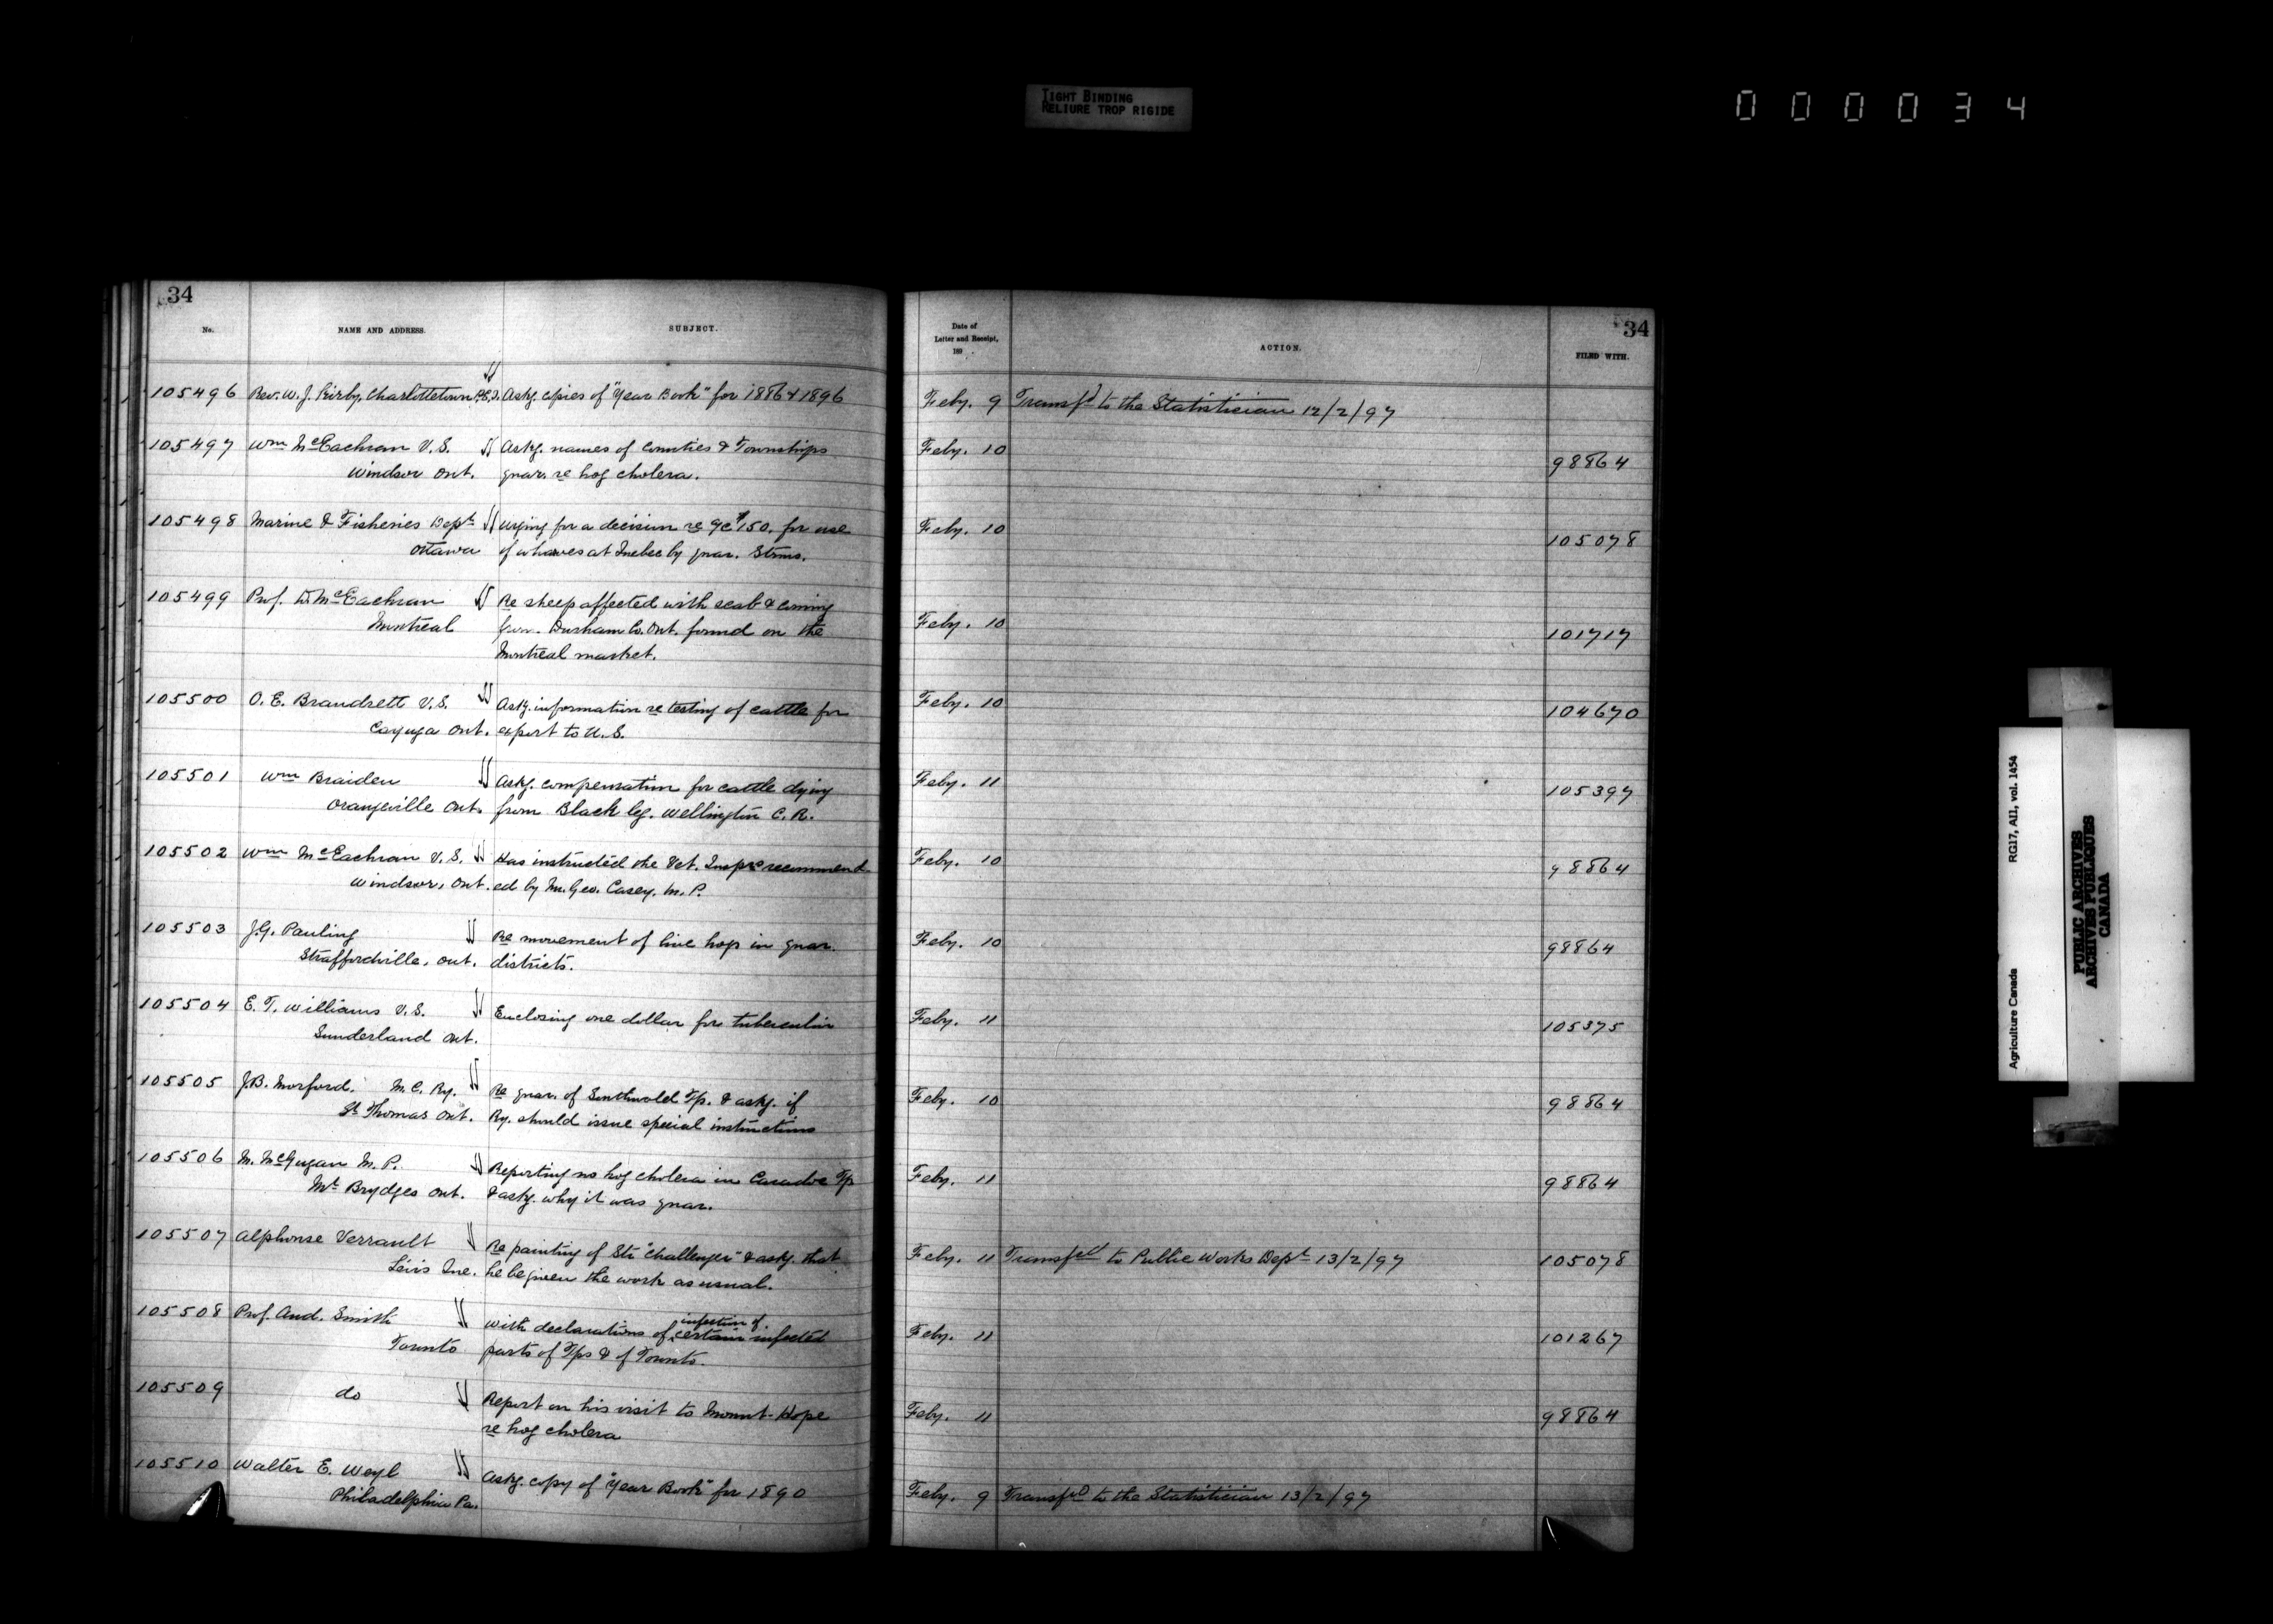 TIGHT BINDING
RELIURE TROP RIGIDE
000034
34
No. NAME AND ADDRESS. SUBJECT.
105496 Rev. W. J. Kirby, Charlottetown P.E.I. Askg. copies of "Year Book" for 1886 & 1896
105497 Wm McEachran V.S. Askg. names of Counties & Townships
Windsor Ont. quar. re hog cholera.
105498 Marine & Fisheries Dept Urging for a decision re $150. for use
Ottawa of wharves at Quebec by quar. Strms.
105499 Prof. D. McEachran Re sheep affected with scab & coming
Montreal from Durham Co. Ont. found on the
Montreal market.
105500 O. E. Brandrett V.S. Askg. information re testing of cattle for
Cayuga Ont. export to U.S.
105501 Wm Braiden Askg. compensation for cattle dying
Orangeville Ont. from Black leg. Wellington C. R.
105502 Wm McEachran V.S. Has instructed the Vet. Inspr recommend-
Windsor, Ont. ed by Mr. Geo. Casey, M.P.
105503 J.G. Pauling Re movement of live hogs in quar.
Straffordville, Ont. districts.
105504 E. T. Williams V.S. Enclosing one dollar for tuberculin
Sunderland Ont.
105505 J.B. Morford. M.C. Ry. Re quar. of Southwold Tp. & askg. if
St Thomas Ont. Ry. should issue special instructions
105506 M. McGugan M.P. Reporting no hog cholera in Caradoc Tp
Mt Brydges Ont. & askg. why it was quar.
105507 Alphonse Verrault Re painting of Str "Challenger" & askg. that
Lévis Que. he be given the work as usual.
105508 Prof. And. Smith With declarations of infection of certain infected
Toronto parts of Tps & of Toronto.
105509 do Report on his visit to Mount-Hope
re hog cholera
105510 Walter E. Weyl Askg. copy of "Year Book" for 1890
Philadelphia Pa.
34
Date of
Letter and Receipt,
189 . ACTION. FILED WITH.
Feby. 9 Transfd to the Statistician 12/2/97
Feby. 10 98864
Feby. 10 105078
Feby. 10 101717
Feby. 10 104670
Feby. 11 105397
Feby. 10 98864
Feby. 10 98864
Feby. 11 105375
Feby. 10 98864
Feby. 11 98864
Feby. 11 Transfed to Public Works Dept 13/2/97 105078
Feby. 11 101267
Feby. 11 98864
Feby. 9 Transfd to the Statistician 13/2/97
Agriculture Canada RG17, AII, vol. 1454
PUBLIC ARCHIVES
ARCHIVES PUBLIQUES
CANADA